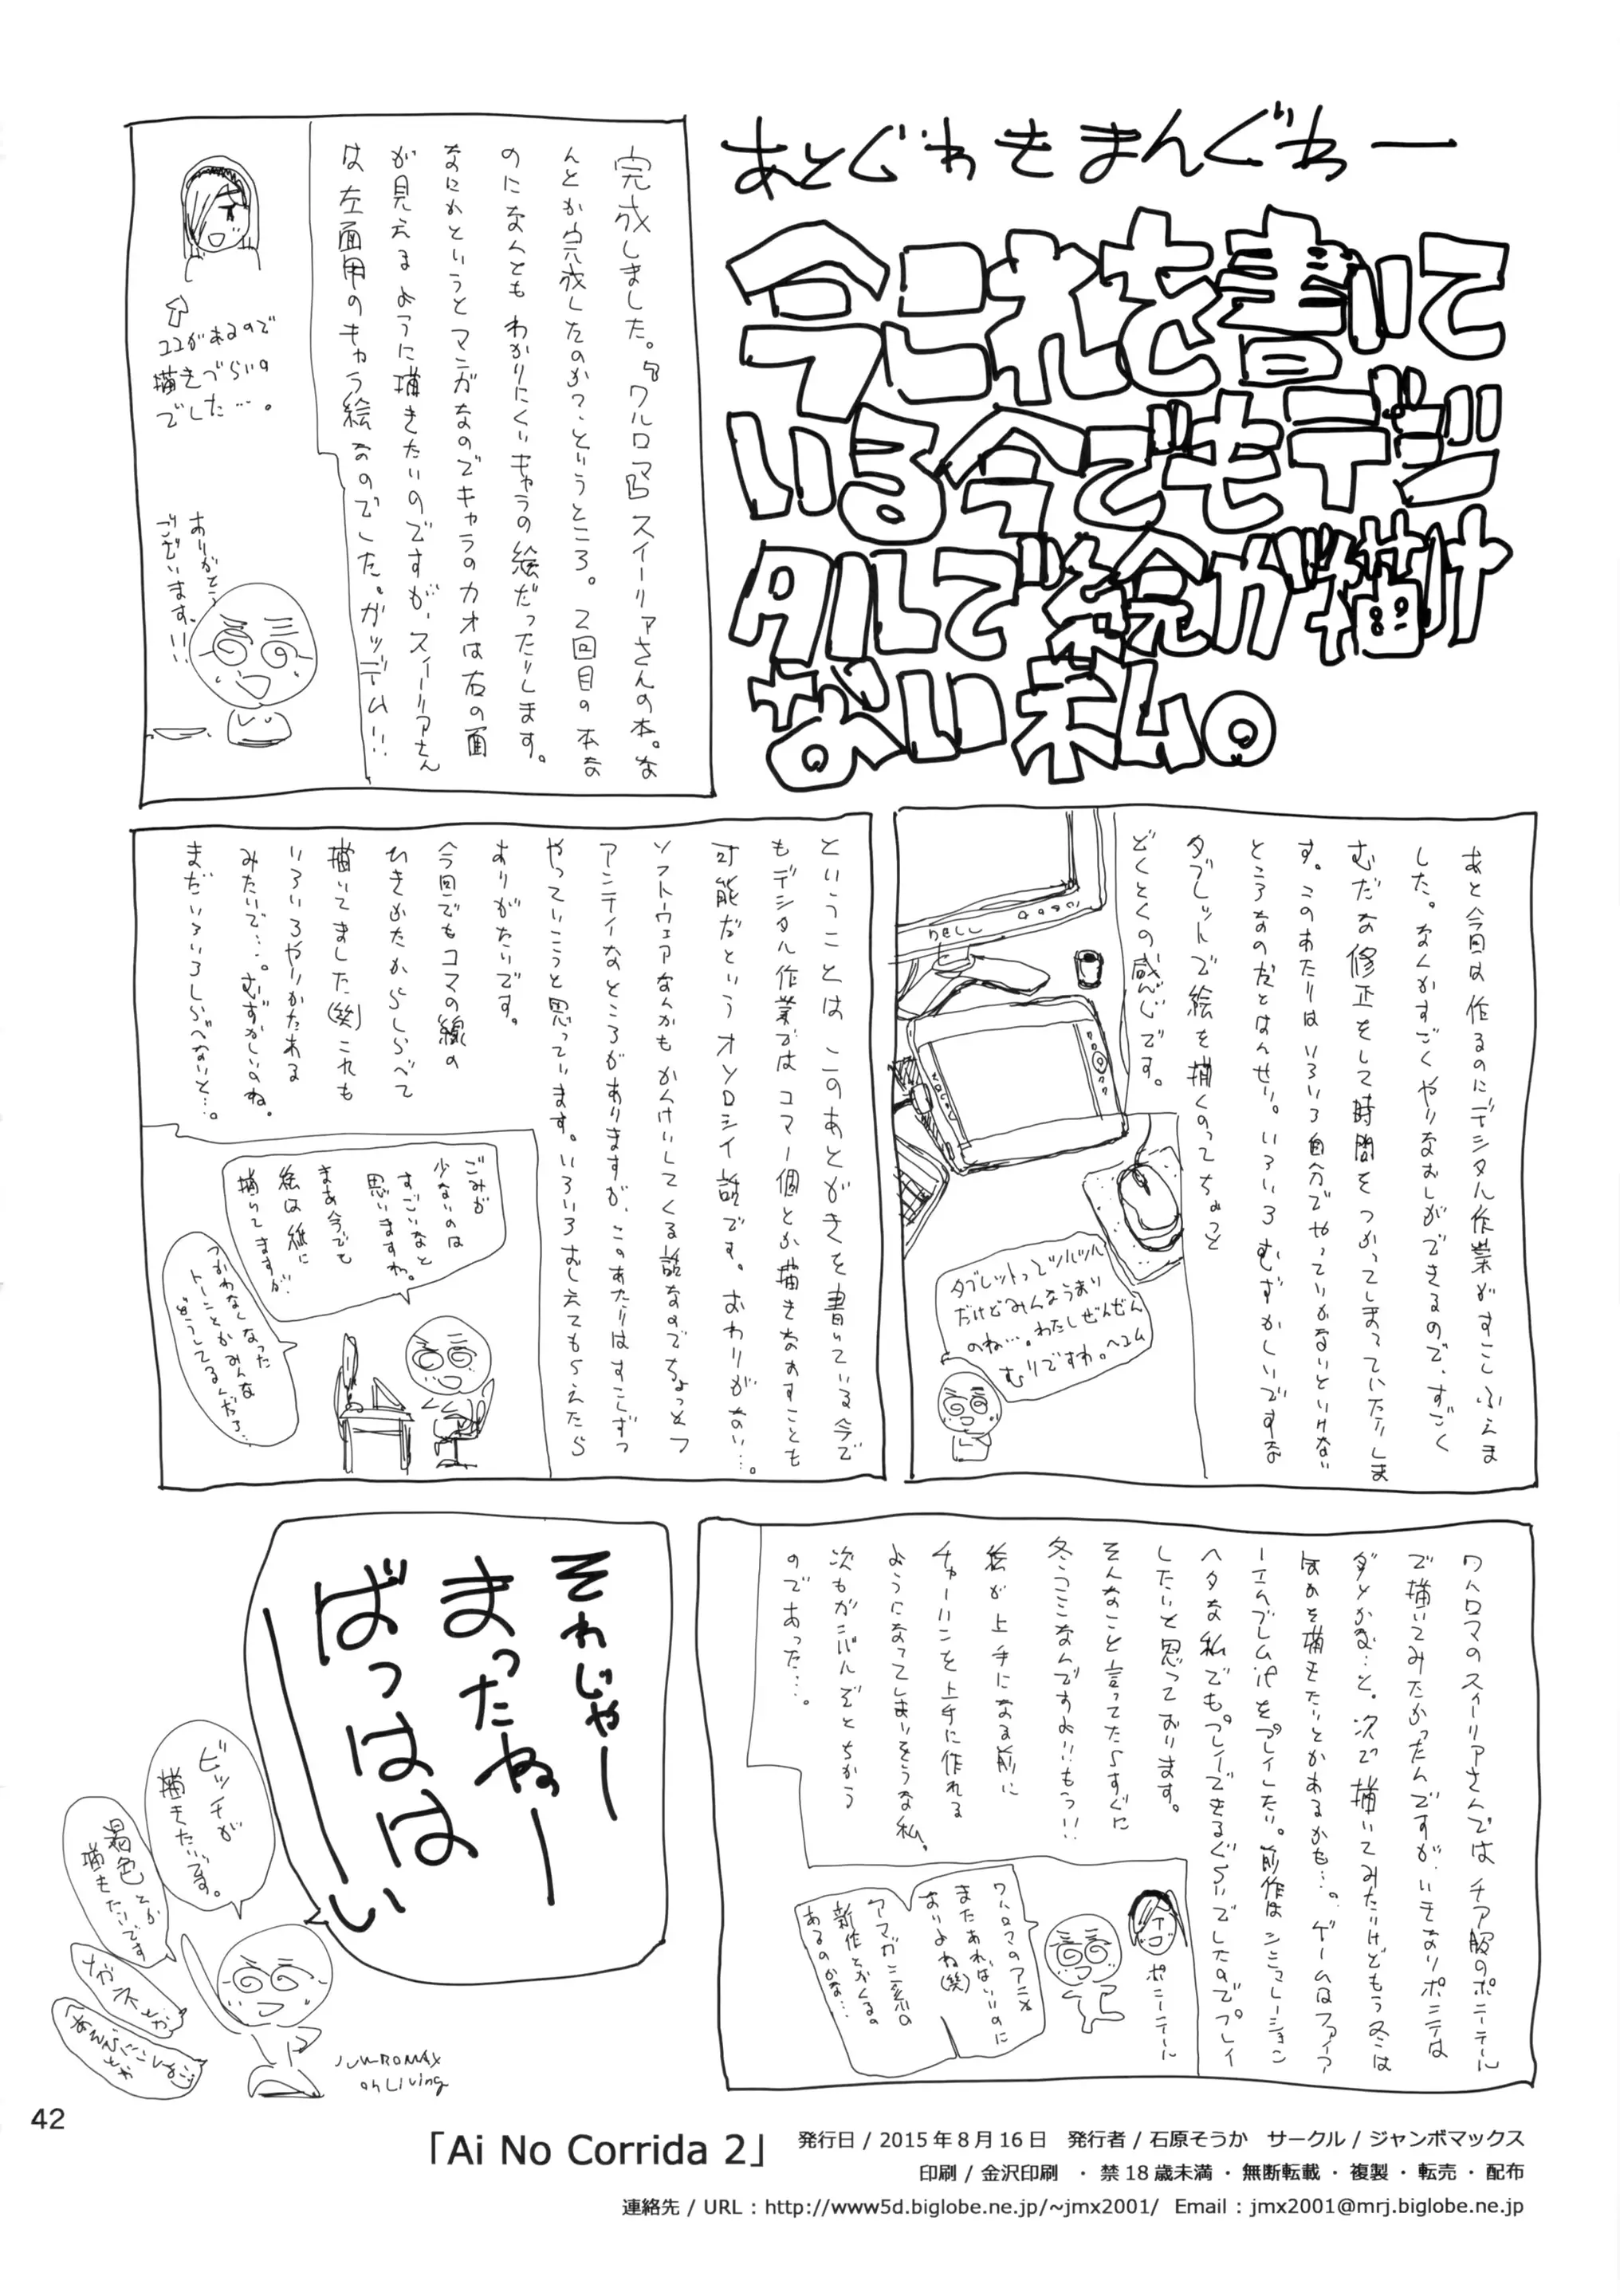 あとぐわきまんぐわー
今これを書いて
いる今でもデジ
タルで絵が描け
ない私。
完成しました。『ワルロマ』スイーリアさんの本。な
んとか完成したのか?というところ。2回目の本な
のになんともわかりにくいキャラの絵だったりします。
なにかというとマンガなのでキャラのカオは右の面
が見えるように描きたいのですが、スイーリアさん
は左面用のキャラ絵なのでした。ガッデーム!!
ココがあるので
描きづらいの
でした…。
ありがとう
ございます!!
あと今回は作るのにデジタル作業がすこしふえま
した。なんかすごくやりなおしができるので、すごく
むだな修正をして時間をつかってしまっていたりしま
す。このあたりはいろいろ自分でやっていかないといけない
ところなのだとはんせい。いろいろむずかしいですな
タブレットで絵を描くのってちょっと
どくとくの感じです。
DELL
タブレットってツルツル
だけどみんなうまい
のね…。わたしぜんぜん
むりですわ。ヘコム
ということは、このあとがきを書いている今で
もデジタル作業ではコマ1個とか描きなおすことも
可能だというオソロシイ話です。おわりがない…。
ソフトウェアなんかもかんけいしてくる話なのでちょっとフ
アンティなところがありますが、このあたりはすこしずつ
やっていこうと思っています。いろいろおしえてもらえたら
ありがたいです。
今回でもコマの線の
ひきかたからしらべて
描いてました(笑)これも
いろいろやりかたある
みたいで…。むずかしいのね。
まだいろいろしらべないと…。
ごみが
少ないのは
すごいなと
思いますわ。
まあ今でも
絵は紙に
描いてますが
つかわなくなった
トーンとかみんな
どうしてるんだろ…
ワルロマのスイーリアさんではチア服のポニーテール
で描いてみたかったんですが、いきなりポニテは
ダメかな…と。次で描いてみたいけどもう冬は
なのを描きたいとかあるかも…。ゲームはファイア
ーエムブレムifをプレイしたい。前作はシミュレーション
ヘタな私でもプレイできるぐらいでしたのでプレイ
したいと思っております。
そんなこと言ってたらすぐに
冬コミなんですよ!!もう!!
絵が上手になる前に
チャーハンを上手に作れる
ようになってしまいそうな私。
次もガンバルぞとちかう
のであった…。
ポニーテール
ワルロマのアニメ
またあればいいのに
おりよね(笑)
アマガミ系の
新作とかくるの
あるのかな…
それじゃー
まったねー
ばっははーい
ビッチが
描きたいです。
褐色とか
描きたいです
メガネとか
JUNBOMAX
on Living
42
「Ai No Corrida 2」
発行日 / 2015 年 8 月 16 日　発行者 / 石原そうか　サークル / ジャンボマックス
印刷 / 金沢印刷　・ 禁 18 歳未満 ・ 無断転載 ・ 複製 ・ 転売 ・ 配布
連絡先 / URL : http://www5d.biglobe.ne.jp/~jmx2001/　Email : jmx2001@mrj.biglobe.ne.jp